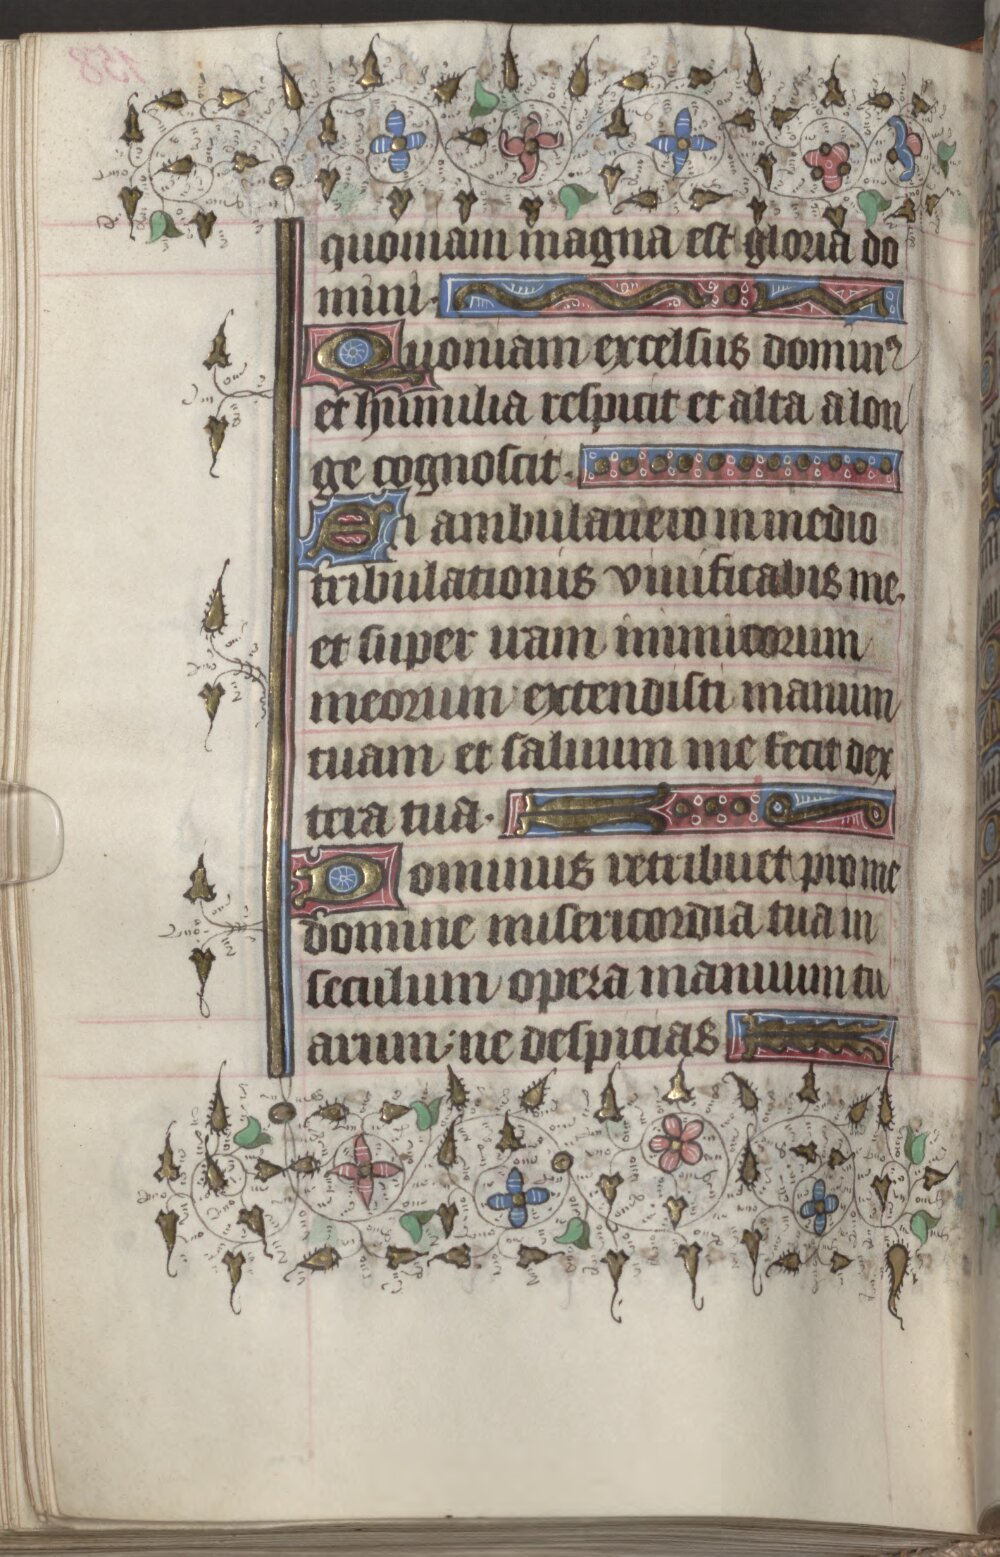 quoniam magna est gloria do
mini.
Quoniam excelsus dominꝰ
et humilia respicit et alta a lon
ge cognoscit.
Si ambulauero in medio
tribulationis viuificabis me.
et super iram inimicorum
meorum extendisti manum
tuam et saluum me fecit dex
tera tua.
Dominus retribuet pro me
domine misericordia tua in
seculum opera manuum tu
arum ne despicias